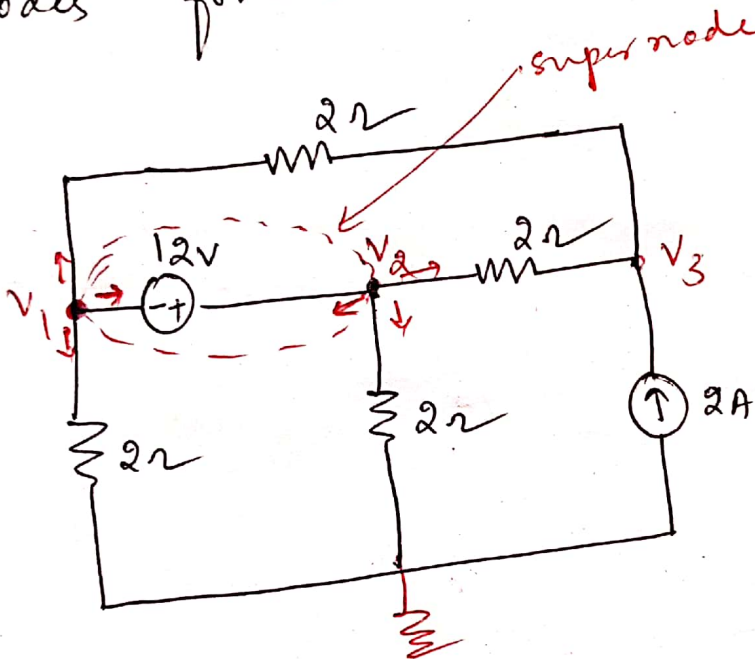 supernode
2Ω
12V
V2
2Ω
V3
V1
- +
2Ω
2Ω
2A